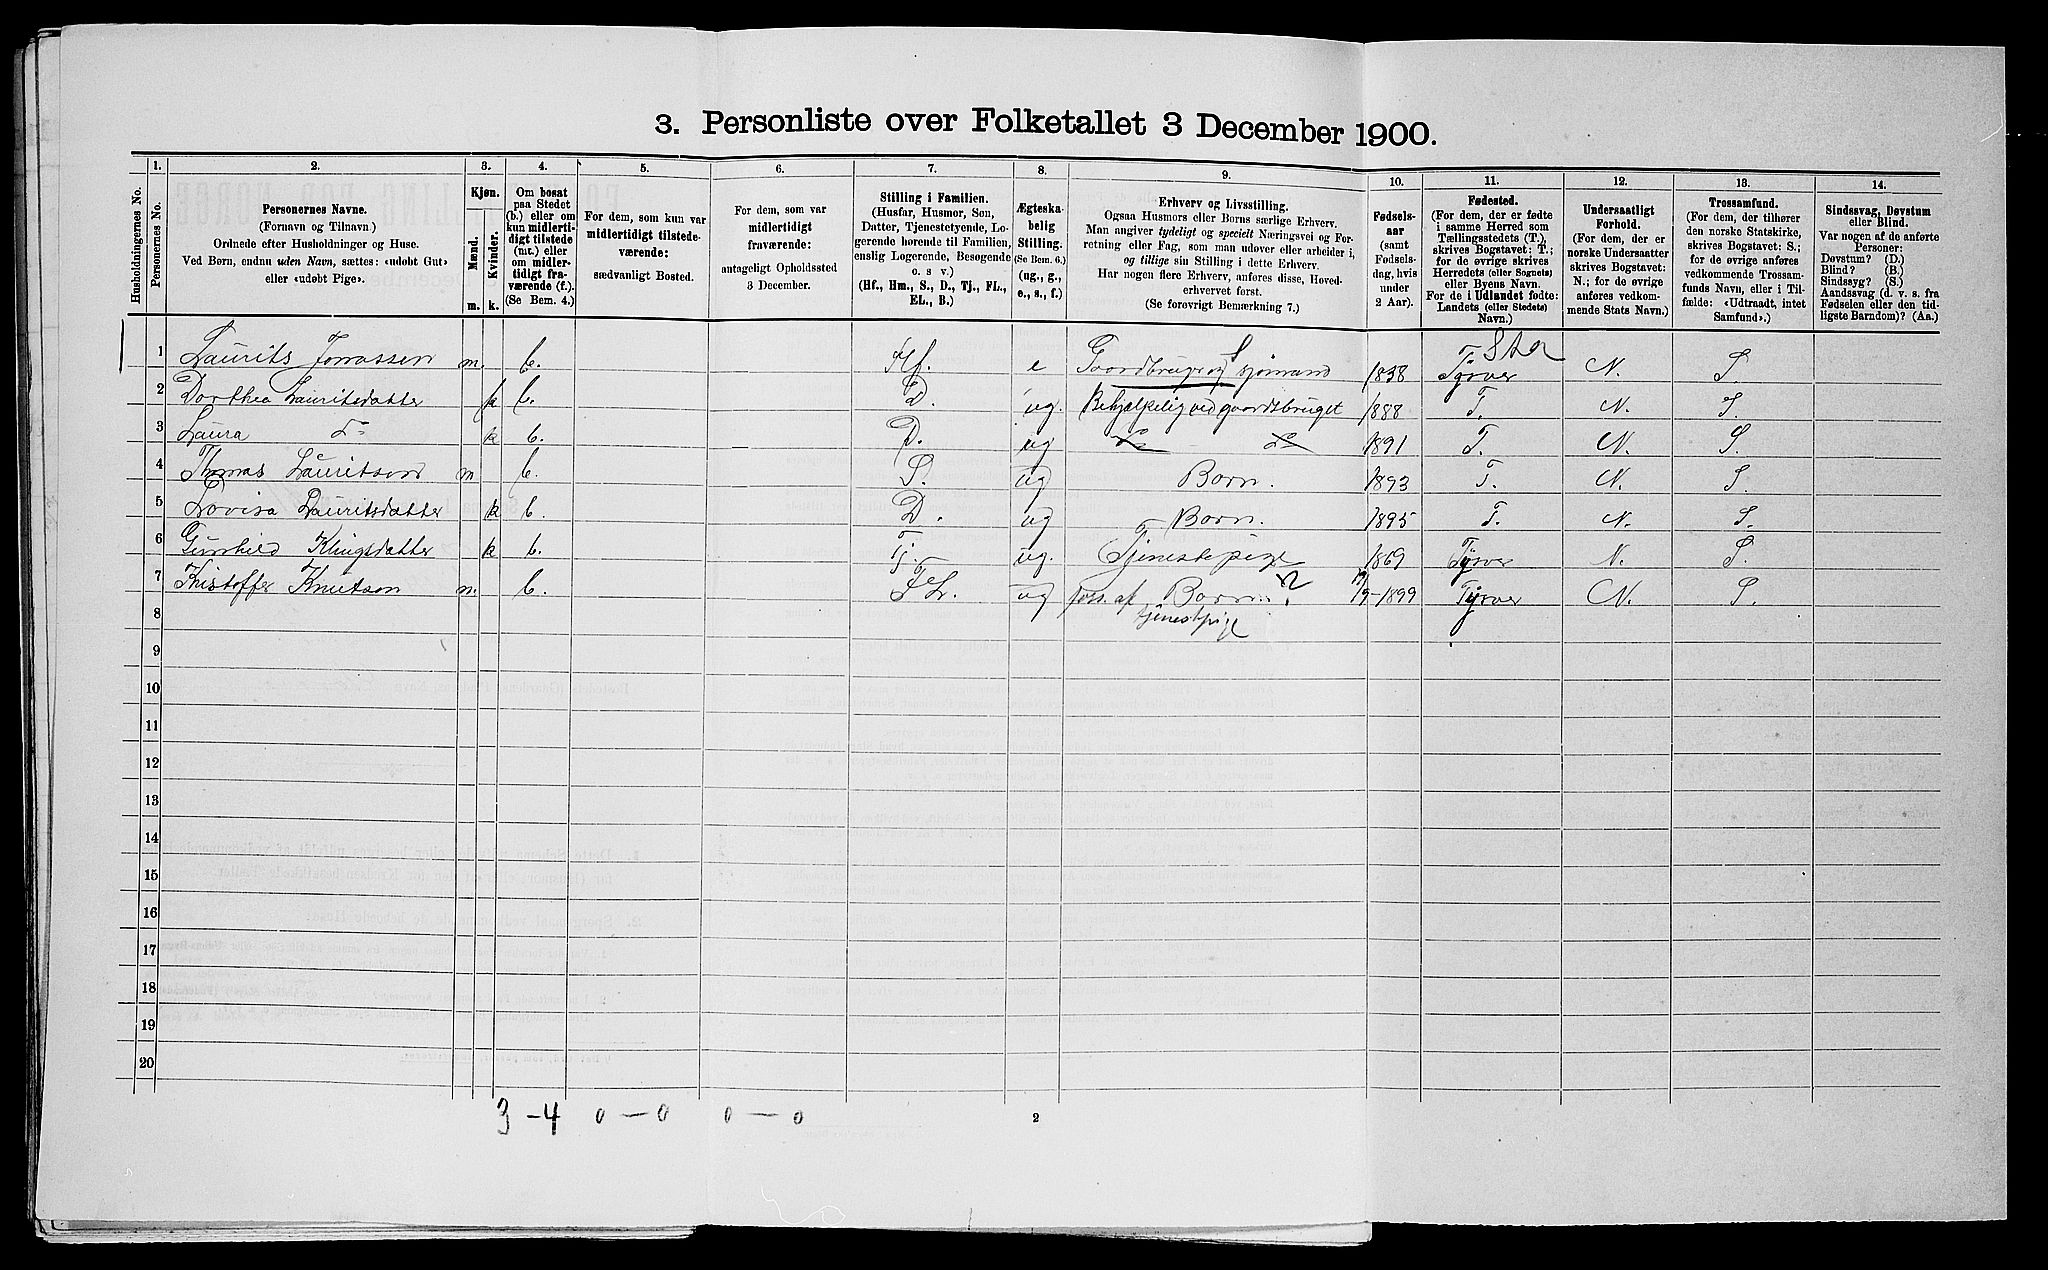 3. Personliste over Folketallet 3 December 1900.
Husholdningernes No.
1. Personernes No.
2. Personernes Navne.
(Fornavn og Tilnavn.)
Ordnede efter Husholdninger og Huse.
Ved Børn, endnu uden Navn, sættes: «udøbt Gut»
eller «udøbt Pige».
3. Kjøn.
Mænd. m.
Kvinder. k.
4. Om bosat
paa Stedet
(b.) eller om
kun midler-
tidigt tilstede
(mt.) eller
om midler-
tidigt fra-
værende (f.).
(Se Bem. 4.)
5. For dem, som kun var
midlertidigt tilstede-
værende:
sædvanligt Bosted.
6. For dem, som var
midlertidigt
fraværende:
antageligt Opholdssted
3 December.
7. Stilling i Familien.
(Husfar, Husmor, Søn,
Datter, Tjenestetyende, Lo-
gerende hørende til Familien,
enslig Logerende, Besøgende
o. s v.)
(Hf., Hm., S., D., Tj., FL.,
EL., B.)
8. Ægteska-
belig
Stilling.
(Se Bem. 6.)
(ug., g.,
e., s., f.)
9. Erhverv og Livsstilling.
Ogsaa Husmors eller Børns særlige Erhverv.
Man angiver tydeligt og specielt Næringsvei og For-
retning eller Fag, som man udøver eller arbeider i,
og tillige sin Stilling i dette Erhverv.
Har nogen flere Erhverv, anføres disse, Hoved-
erhvervet først.
(Se forøvrigt Bemærkning 7.)
10. Fødsels-
aar
(samt
Fødsels-
dag, hvis
under
2 Aar).
11. Fødested.
(For dem, der er fødte
i samme Herred som
Tællingsstedets (T.),
skrives Bogstavet: T.;
for de øvrige skrives
Herredets (eller Sognets)
eller Byens Navn.
For de i Udlandet fødte:
Landets (eller Stedets)
Navn.)
12. Undersaatligt
Forhold.
(For dem, der er
norske Undersaatter
skrives Bogstavet:
N.; for de øvrige
anføres vedkom-
mende Stats Navn.)
13. Trossamfund.
(For dem, der tilhører
den norske Statskirke,
skrives Bogstavet: S.;
for de øvrige anføres
vedkommende Trossam-
funds Navn, eller i Til-
fælde: «Udtraadt, intet
Samfund».)
14. Sindssvag, Døvstum
eller Blind.
Var nogen af de anførte
Personer:
Døvstum? (D.)
Blind? (B.)
Sindssyg? (S.)
Aandssvag (d. v. s. fra
Fødselen eller den tid-
ligste Barndom)? (Aa.)
1 Laurits Jonassen m. b. Hf. e Gaardbruger og sjømand 1838 Tysvær N. S.
2 Dorthea Lauritsdatter k b. D. ug. Behjælpelig ved gaardsbruget 1888 T. N. S.
3 Laura Do k b. D. ug Do Do 1891 T. N. S.
4 Thomas Lauritsen m b. S. ug Barn. 1893 T. N. S.
5 Lovisa Lauritsdatter k b. D. ug Barn. 1895 T. N. S.
6 Gunhild Klingsdatter k b. Tj. ug. Tjenestepige 1869 Tysvær N. S.
7 Kristoffer Knutson m. b. FL. ug fors. af Barn. ? 1899 Tysvær N. S.
tjenestpige
8
9
10
11
12
13
14
15
16
17
18
19
20
3 – 4 0 — 0 0 — 0
2